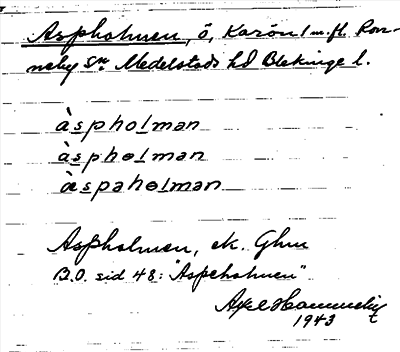 Aspholmen, ö, Karön 1 m.fl. Ron-
neby sn Medelstads hd Blekinge l.
àspholman
àsphɵlman
æ̀spahɵlman
Aspholmen, ek. Ghm
B.O. sid 48: "Aspeholmen"
1943